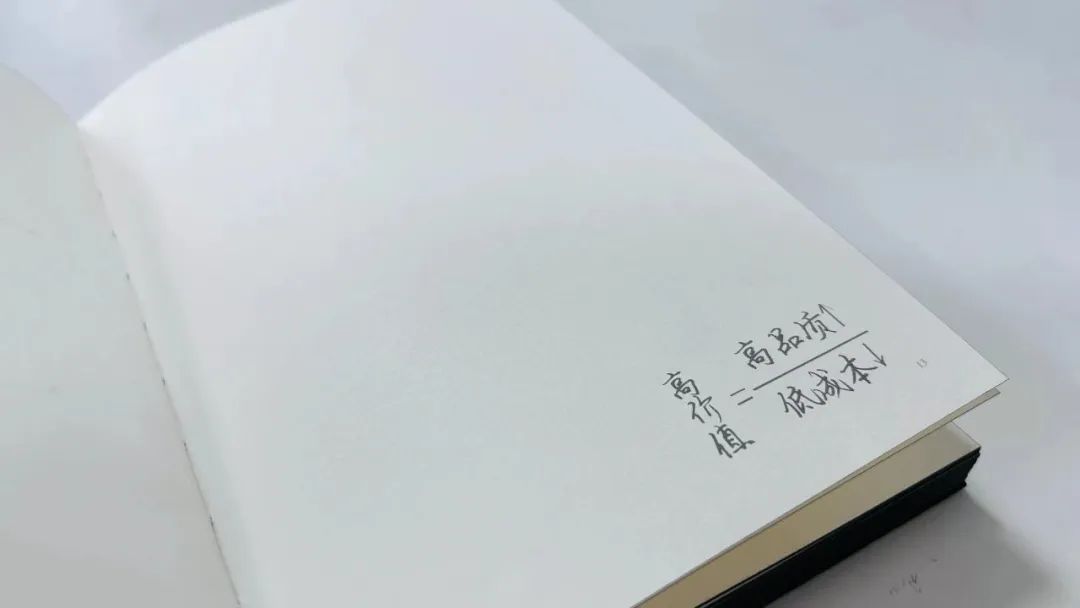 高价值 = 高品质↑
低成本↓
13